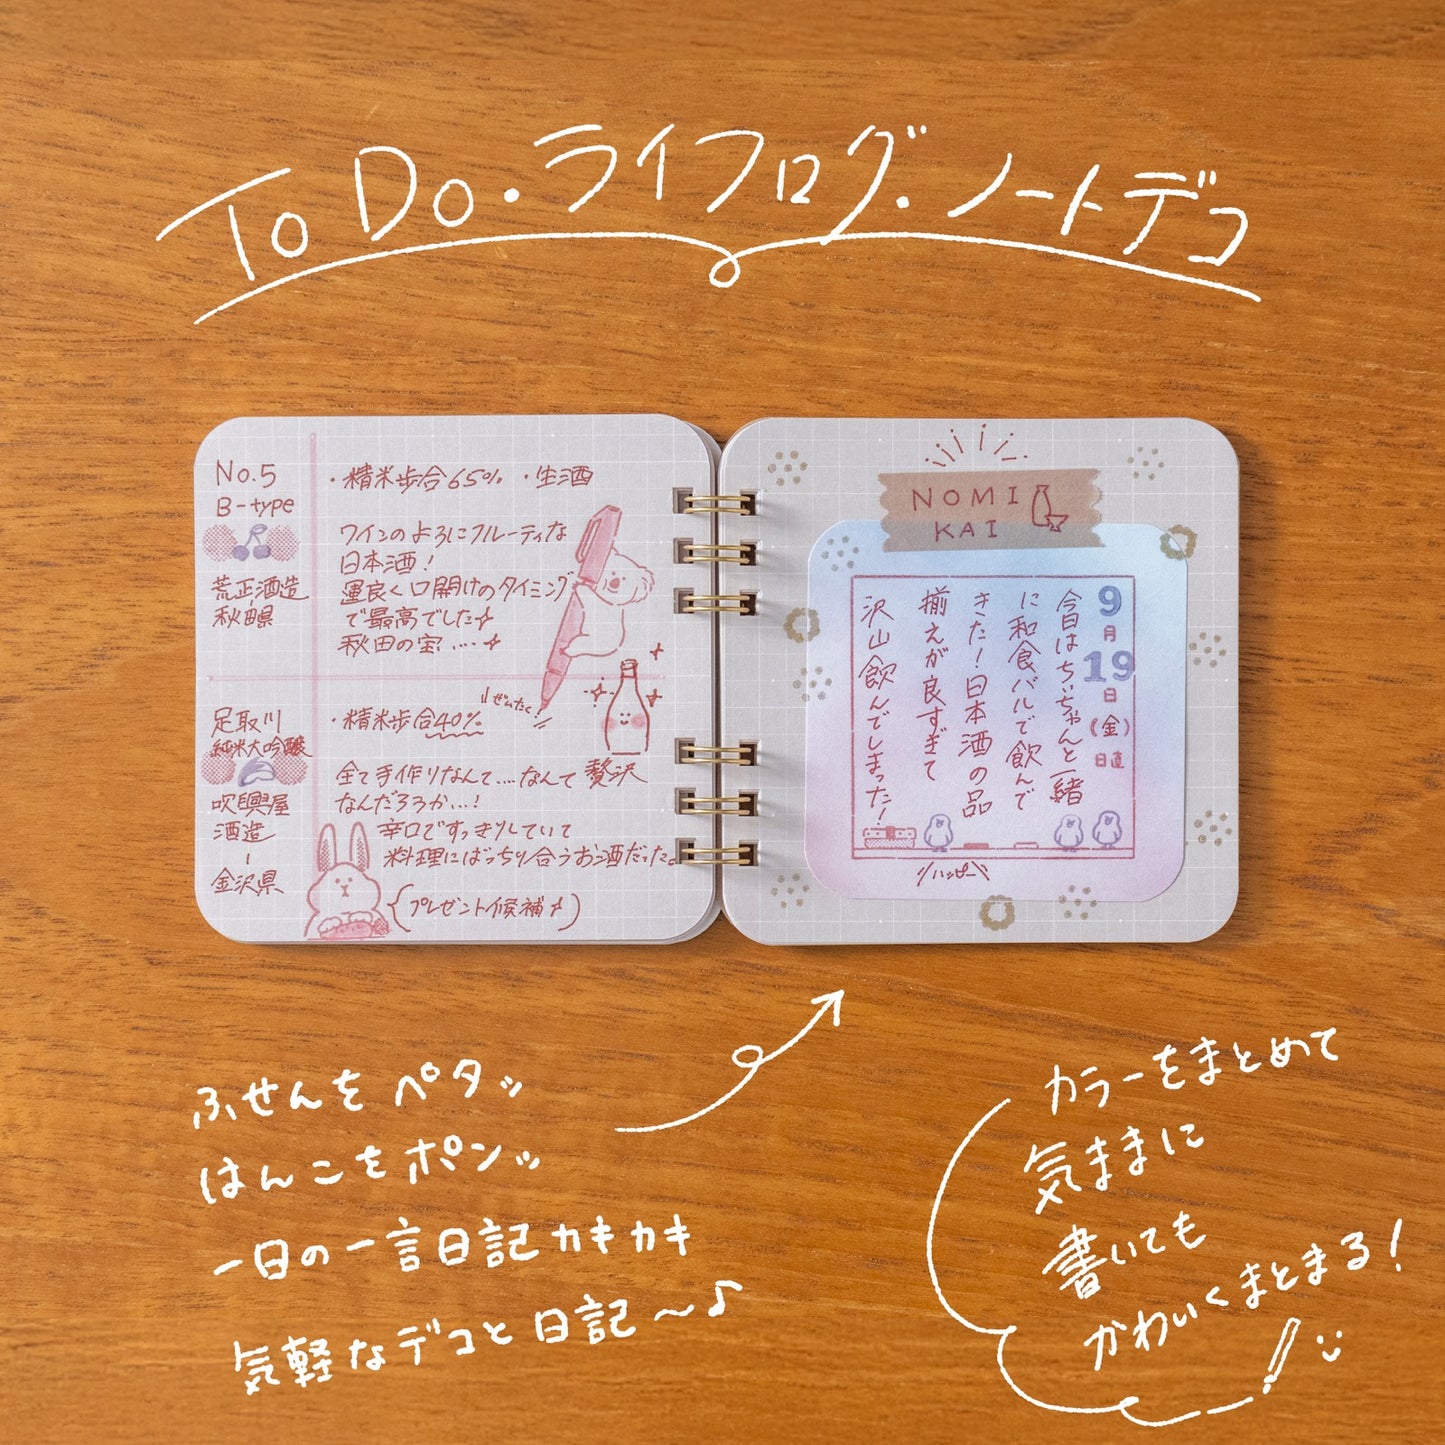 To Do・ライフログ・ノートデコ
No.5
B-type
荒正酒造
秋田県
・精米歩合65% ・生酒
ワインのようにフルーティな
日本酒！
運良く口開けのタイミング
で最高でした
秋田の宝……
足取川
純米大吟醸
吹興屋
酒造
金沢県
・精米歩合40%
ぜいたく!
全て手作りなんて…なんて贅沢
なんだろうか…！
辛口ですっきりしていて
料理にばっちり合うお酒だった。
(プレゼント候補)
NOMI
KAI
9月19日(金)
日直
今日はちぃちゃんと一緒
に和食バルで飲んで
きた！日本酒の品
揃えが良すぎて
沢山飲んでしまった！
ハッピー
ふせんをペタッ
はんこをポンッ
一日の一言日記カキカキ
気軽なデコと日記〜♪
カラーをまとめて
気ままに
書いても
かわいくまとまる！